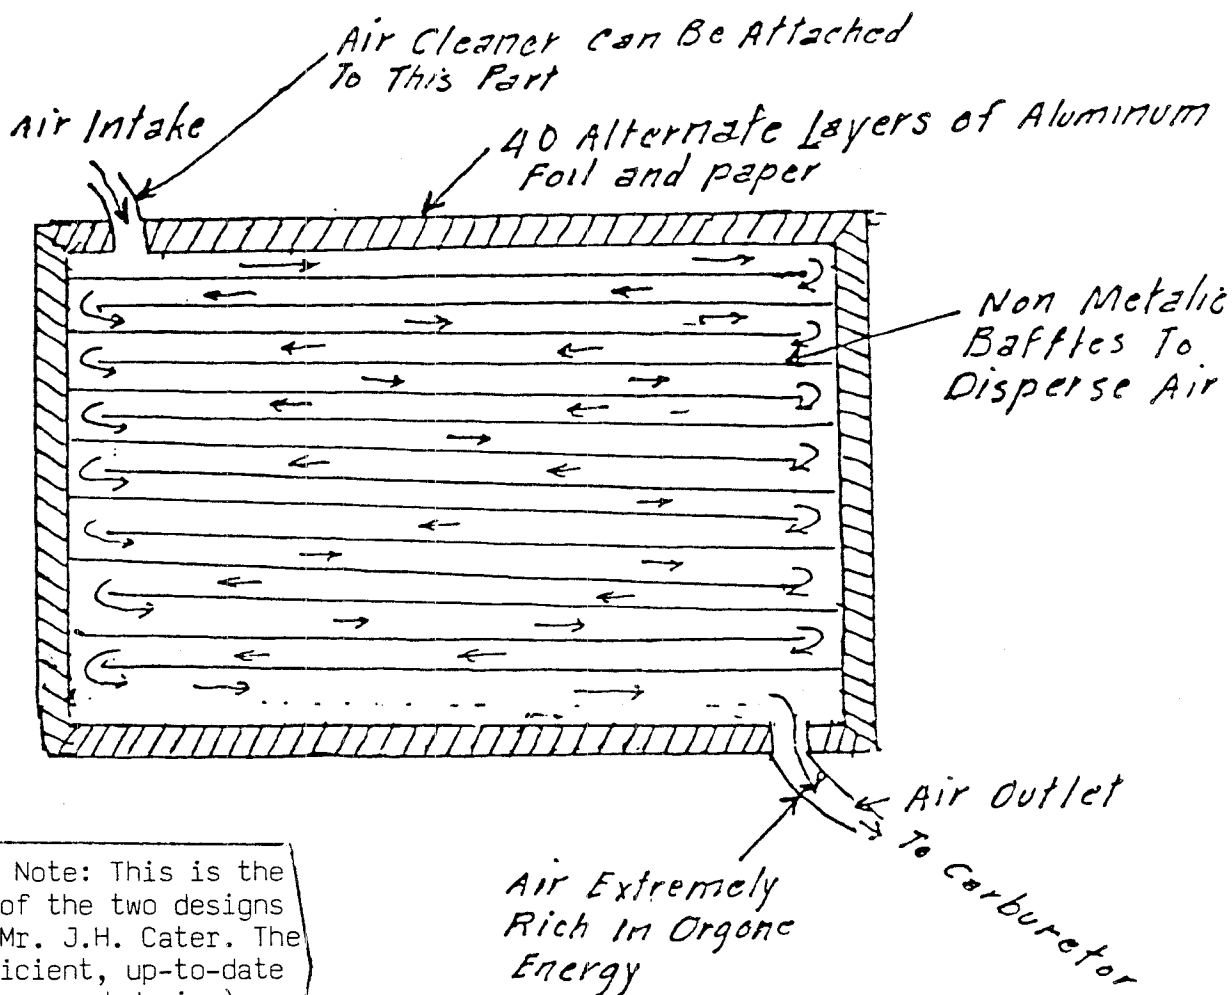 Air Cleaner Can Be Attached
To This Part
Air Intake
40 Alternate Layers of Aluminum
Foil and paper
Non Metalic
Baffles To
Disperse Air
Air Outlet
To Carburetor
Air Extremely
Rich In Orgone
Energy
Note: This is the
of the two designs
Mr. J.H. Cater. The
icient, up-to-date